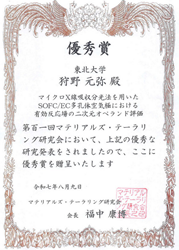 優秀賞
東北大学
狩野 元弥 殿
マイクロX線吸収分光法を用いた
SOFC/EC多孔体空気極における
有効反応場の二次元オペランド評価
第百一回マテリアルズ・テーラリ
ング研究会において、上記の優秀な
研究発表をされましたので、ここに
優秀賞を贈呈いたします
令和七年八月九日
マテリアルズ・テーラリング研究会
会長 福中 康博